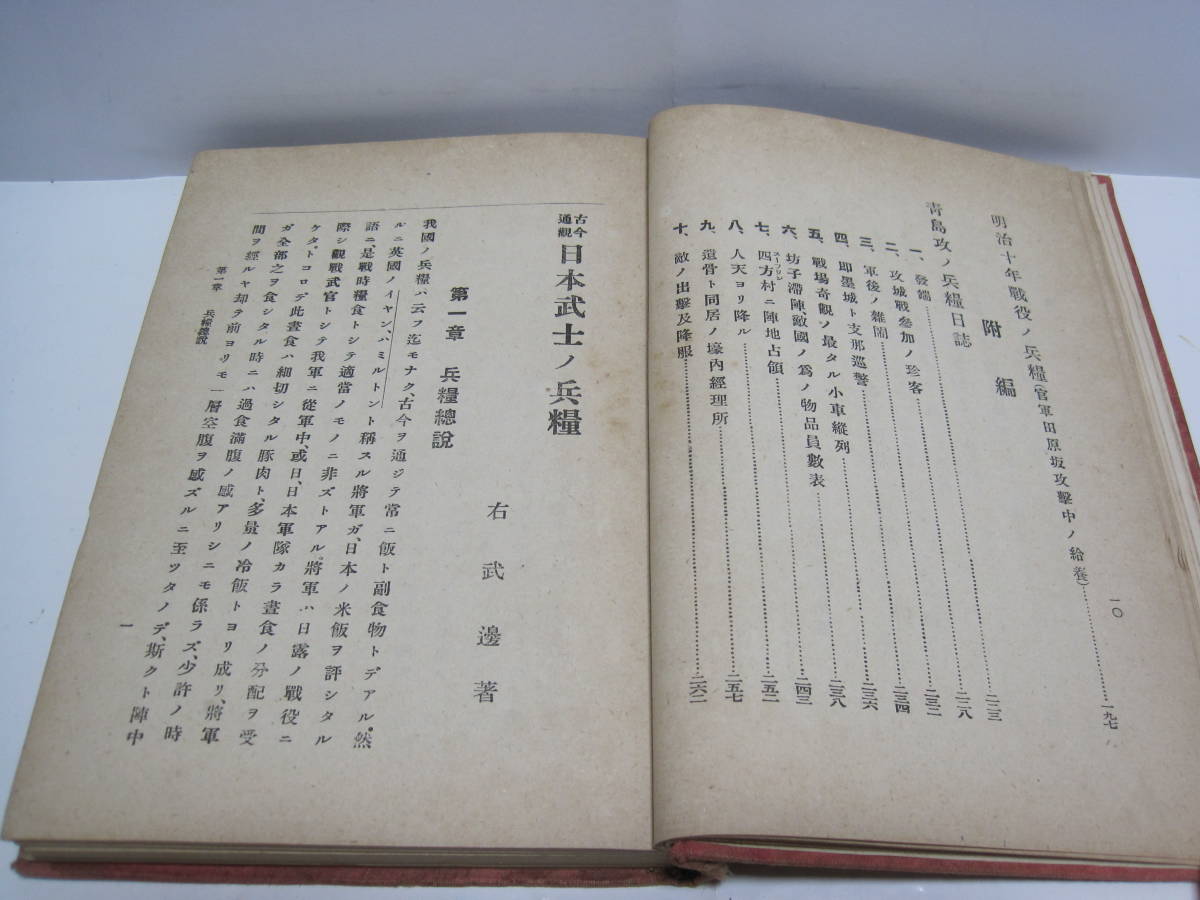 一〇
明治十年戰役ノ兵糧(官軍田原坂攻擊中ノ給養)……一九七
附編
青島攻ノ兵糧日誌……二二三
一、發端……二二八
二、攻城戰參加ノ珍客……二三二
三、軍後ノ雜鬧……二三四
四、卽墨城ト支那巡警……二三六
五、戰場奇觀ノ最タル小車縱列……二三八
六、坊子滯陣、敵國ノ爲ノ物品員數表……二四三
七、四方村ニ陣地占領……二五二
スーフリン
八、人天ヨリ降ル……二五七
九、遺骨ト同居ノ壕內經理所……二六二
十、敵ノ出擊及降服
古今通觀 日本武士ノ兵糧
右武邊著
第一章 兵糧總說
我國ノ兵糧ハ云フ迄モナク、古今ヲ通ジテ常ニ飯ト副食物トデアル。然
ルニ英國ノイヤン、ハミルトント稱スル將軍ガ、日本ノ米飯ヲ評シタル
語ニ、是戰時糧食トシテ適當ノモノニ非ズトアル。將軍ハ日露ノ戰役ニ
際シ觀戰武官トシテ我軍ニ從軍中、或日、日本軍隊カラ晝食ノ分配ヲ受
ケタ、トコロデ此晝食ハ細切シタル豚肉ト、多量ノ冷飯トヨリ成リ、將軍
ガ全部之ヲ食シタル時ニハ過食滿腹ノ感アリシニモ係ラズ、少許ノ時
間ヲ經ルヤ却テ前ヨリモ一層空腹ヲ感ズルニ至ツタノデ、斯クト陣中
第一章 兵糧總說
一